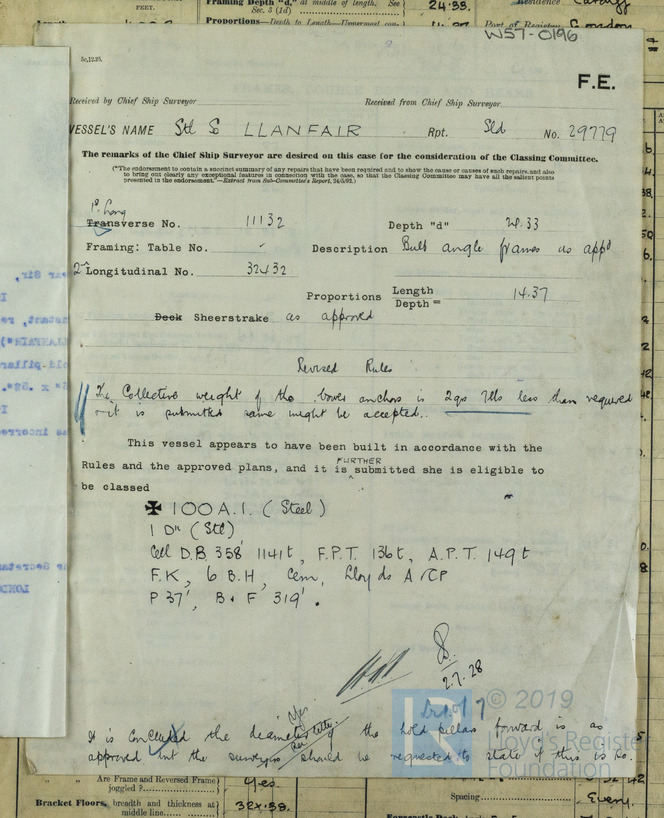 FEET.
Framing Depth "d," at middle of length. See
Sec. 3 (1d)
24.33.
Proportions—Depth to Length—Uppermost con-
Port of Registry London
W57-0196
5c,12.25.
F.E.
Received by Chief Ship Surveyor
Received from Chief Ship Surveyor
VESSEL'S NAME Stl S LLANFAIR Rpt. Sld No. 29779
The remarks of the Chief Ship Surveyor are desired on this case for the consideration of the Classing Committee.
("The endorsement to contain a succinct summary of any repairs that have been required and to show the cause or causes of such repairs, and also
to bring out clearly any exceptional features in connection with the case, so that the Classing Committee may have all the salient points
presented in the endorsement."—Extract from Sub-Committee's Report, 24/5/92.)
1st Long
Transverse No. 11132 Depth "d" 24.33
Framing: Table No. Description Bulb angle frames as appd
2nd Longitudinal No. 32432
Proportions Length
Depth = 14.37
Deck Sheerstrake as approved
Revised Rules
The Collective weight of the bower anchors is 2qrs 7lbs less than required
it is submitted same might be accepted.
This vessel appears to have been built in accordance with the
Rules and the approved plans, and it is FURTHER submitted she is eligible to
be classed
✠ 100A.1. (Steel)
1 Dk (Stl)
Cell D.B 358' 1141t, F.P.T. 136t, A.P.T. 149t
F.K, 6 B.H, Cem, Lloyds A&CP
P 37', B & F 319'.
2.7.28
© 2019
Lloyd's Register
Foundation
It is concluded the diameter of the hold pillars forward is as
approved but the surveyors should be requested to state if this is so.
Are Frame and Reversed Frame
joggled ?
yes.
Spacing
Every.
Bracket Floors, breadth and thickness at
middle line
32x.38.